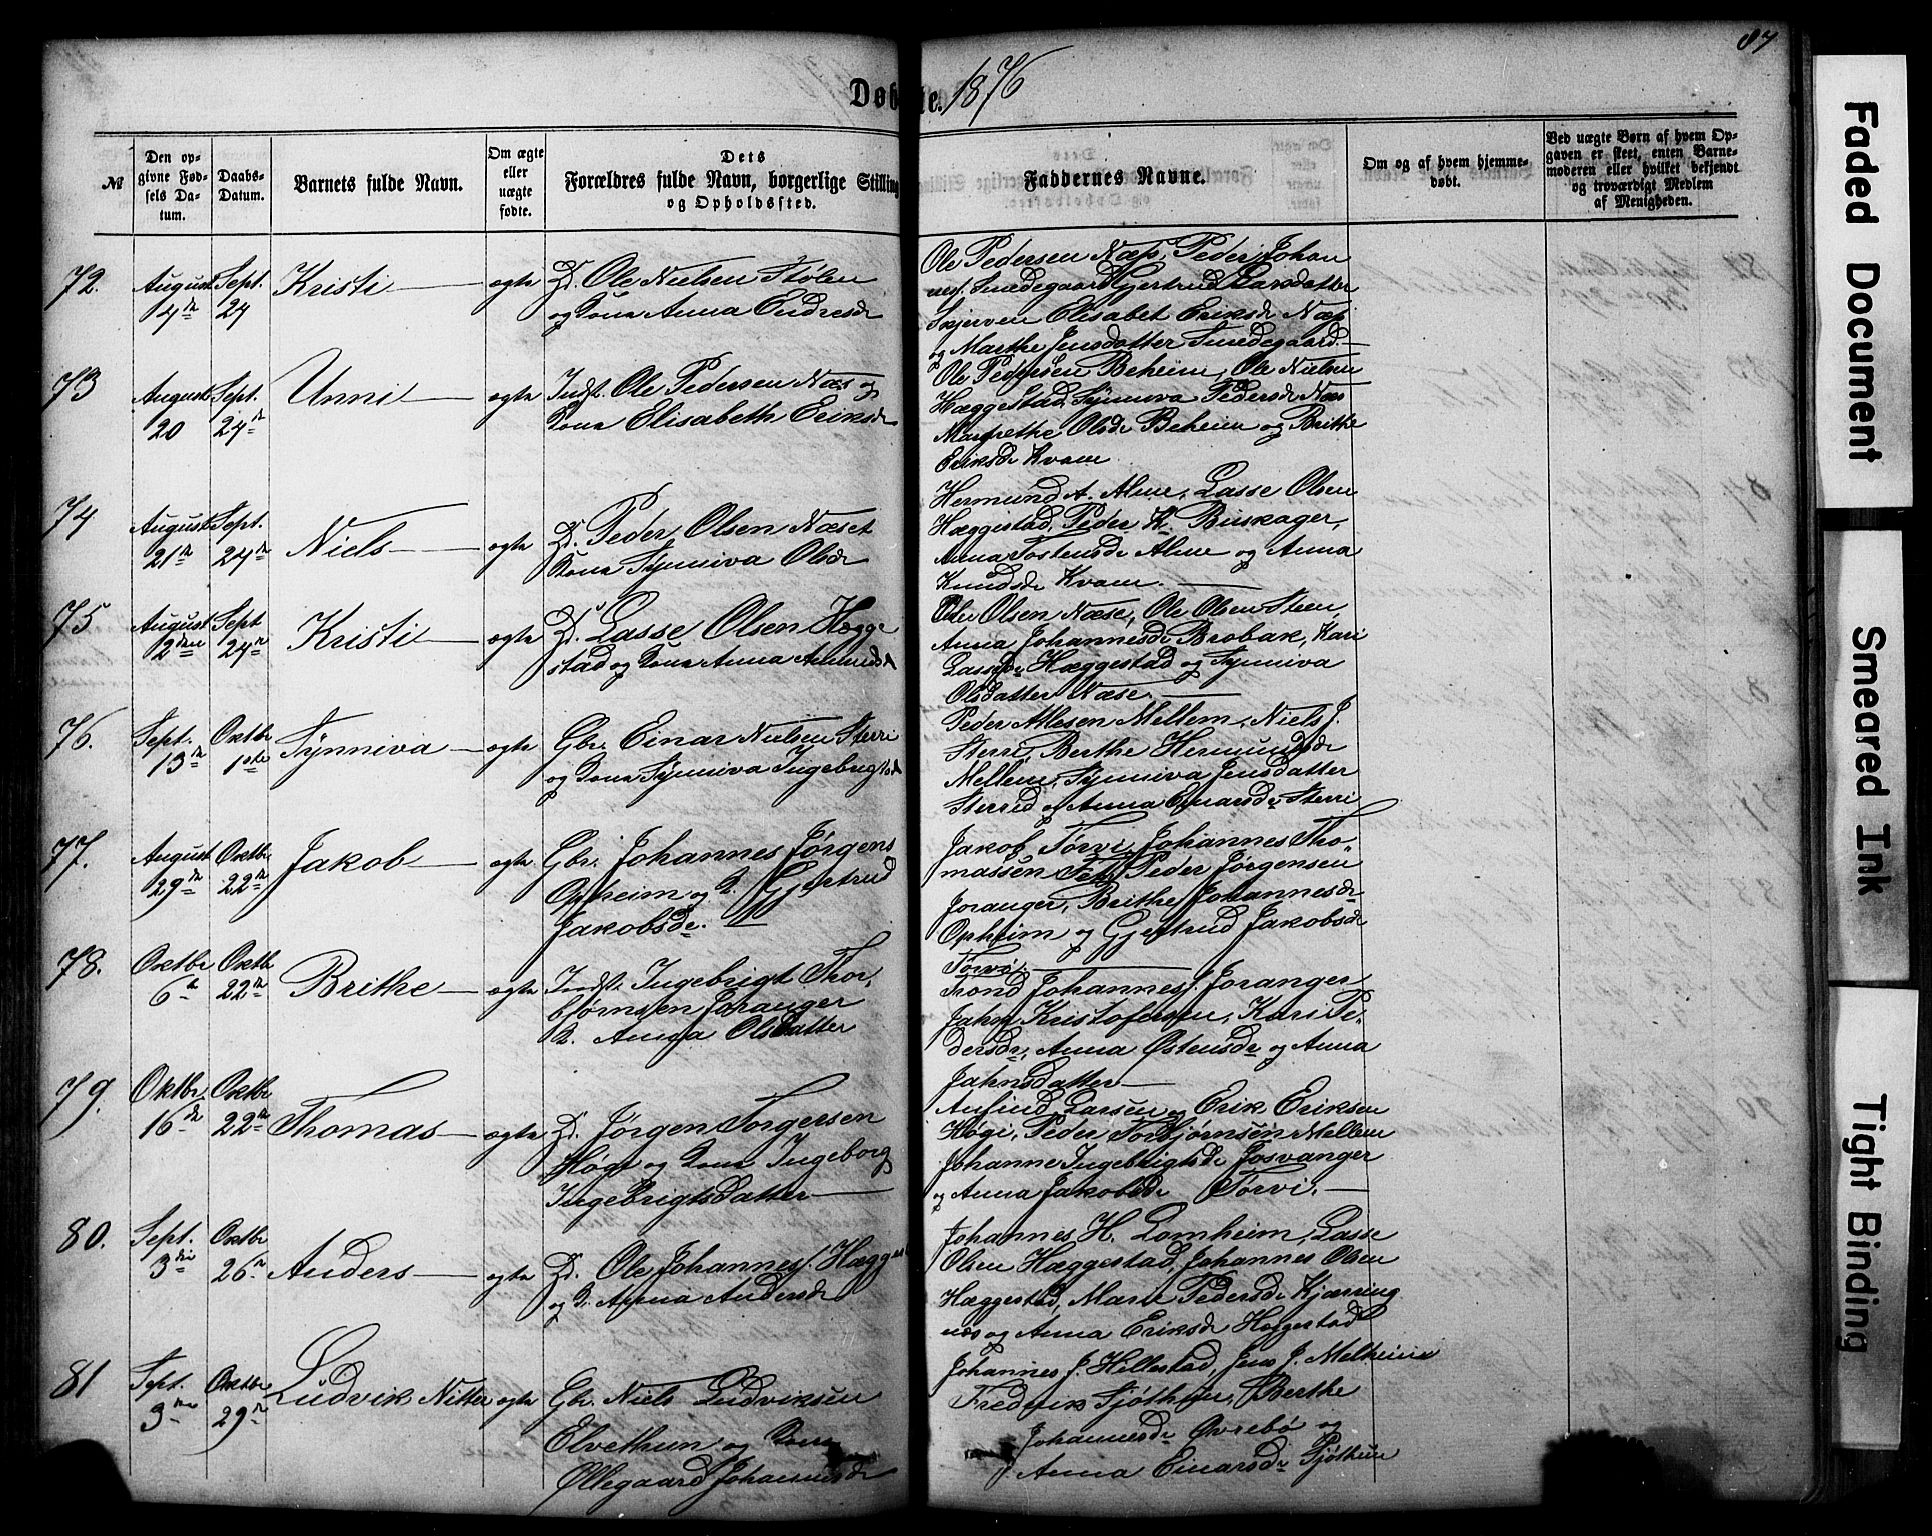 87
Døbte. 1876
№
Den opgivne Fødsels Datum.
Daabs-Datum.
Barnets fulde Navn.
Om ægte eller uægte fødte.
Dets Forældres fulde Navn, borgerlige Stilling og Opholdssted.
Faddernes Navne.
Om og af hvem hjemmedøbt.
Ved uægte Børn af hvem Opgaven er skeet, enten Barnemoderen eller hvilket bekjendt og troværdigt Medlem af Menigheden.
72. August 4de Sept. 24 Kristi ægte Gd. Ole Nielsen Stølen
og Kona Anna Endresdr
Ole Pedersen Næss, Peder Johan
nes. Smedegaard Gjertrud Larsdatter
Skjerven Elisabet Eriksdr Næs
og Marthe Jensdatter Smedegaard
73 August 20 Sept. 24de Unni ægte Indst. Ole Pedersen Næs og
Kona Elisabeth Eriksdr
Ole Pedersen Beheim, Ole Nielsen
Hæggestad, Synneva Pedersdr Næs
Margrethe Olsdr Beheim og Brithe
Eriksdr Kvam
74 August 21de Sept. 24de Niels ægte Gd. Peder Olsen Næset
Kona Synneva Olsdr
Hermund A. Alme, Lasse Olsen
Hæggestad, Peder K. Buskager,
Anna Tostensdr Alme og Anna
Knudsdr Kvam.
75 August 2den Sept 24de Kristi ægte Gd. Lasse Olsen Hægge
stad og Kona Anna
Peder Olsen Næse, Ole Olsen Steen
Anna Johannesdr Brobak, Kari
Lassedr Hæggestad og Synneva
Olsdatter Næse.
76. Sept. 13de Oktbr 1ste Synneva ægte Gbr. Einar Nielsen Sterri
og Kona Synneva Ingebrigtsd
Peder Atlesen Mellem, Niels J.
Sterri, Berthe Hermundsdr
Mellem, Synneva Jensdatter
Sterri og Anna Einarsdr Sterri
77. August 29de Oktbr 22de Jakob ægte Gbr. Johannes Jørgens
Opheim og K. Gjertrud
Jakobsdr.
Jakob Tørvi, Johannes Tho-
massen Fet, Peder Jørgensen
Joranger, Brithe Johannesdr
Opheim og Gjertrud Jakobsdr
Tørvi.
78. Oktbr 6te Oktbr 22de Brithe ægte Indst. Ingebrigt Thor-
bjørnsen Joranger
K. Anna Olsdatter
Trond Johannes. Joranger
Jahn Kristofersen, Kari Pe-
dersdr, Anna Østensdr og Anna
Jahnsdatter
79. Oktbr. 16de Oktbr 22de Thomas ægte Gd. Jørgen Torgersen
Høgi og Kona Ingeborg
Ingebrigtsdatter
Anfind Larsen og Erik Eriksen
Høgi, Peder Torbjørnsen Mellem
Johanne Ingebrigtsdr Josvanger
og Anna Jakobsdr Tørvi.
80. Sept. 3die Oktbr 26de Anders ægte Gd. Ole Johannes. Hægges
og K. Anna Andersdr
Johannes H. Lomheim, Lasse
Olsen Hæggestad, Johannes Olsen
Hæggestad, Mari Pedersdr Kjærring
næs og Anna Eriksdr Heggestad
81 Sept. 3die Oktbr. 29de Ludvik Nitter ægte Gbr. Niels Ludviksen
Elvethun og Kona
Ollegaard Johannesdr
Johannes J. Hillestad, Jens J. Melheim
Fredrik Fjøthun, Berthe
Johannesdr Øvrebø og
Anna Einarsdr Fjøthun
Faded Document
Smeared Ink
Tight Binding